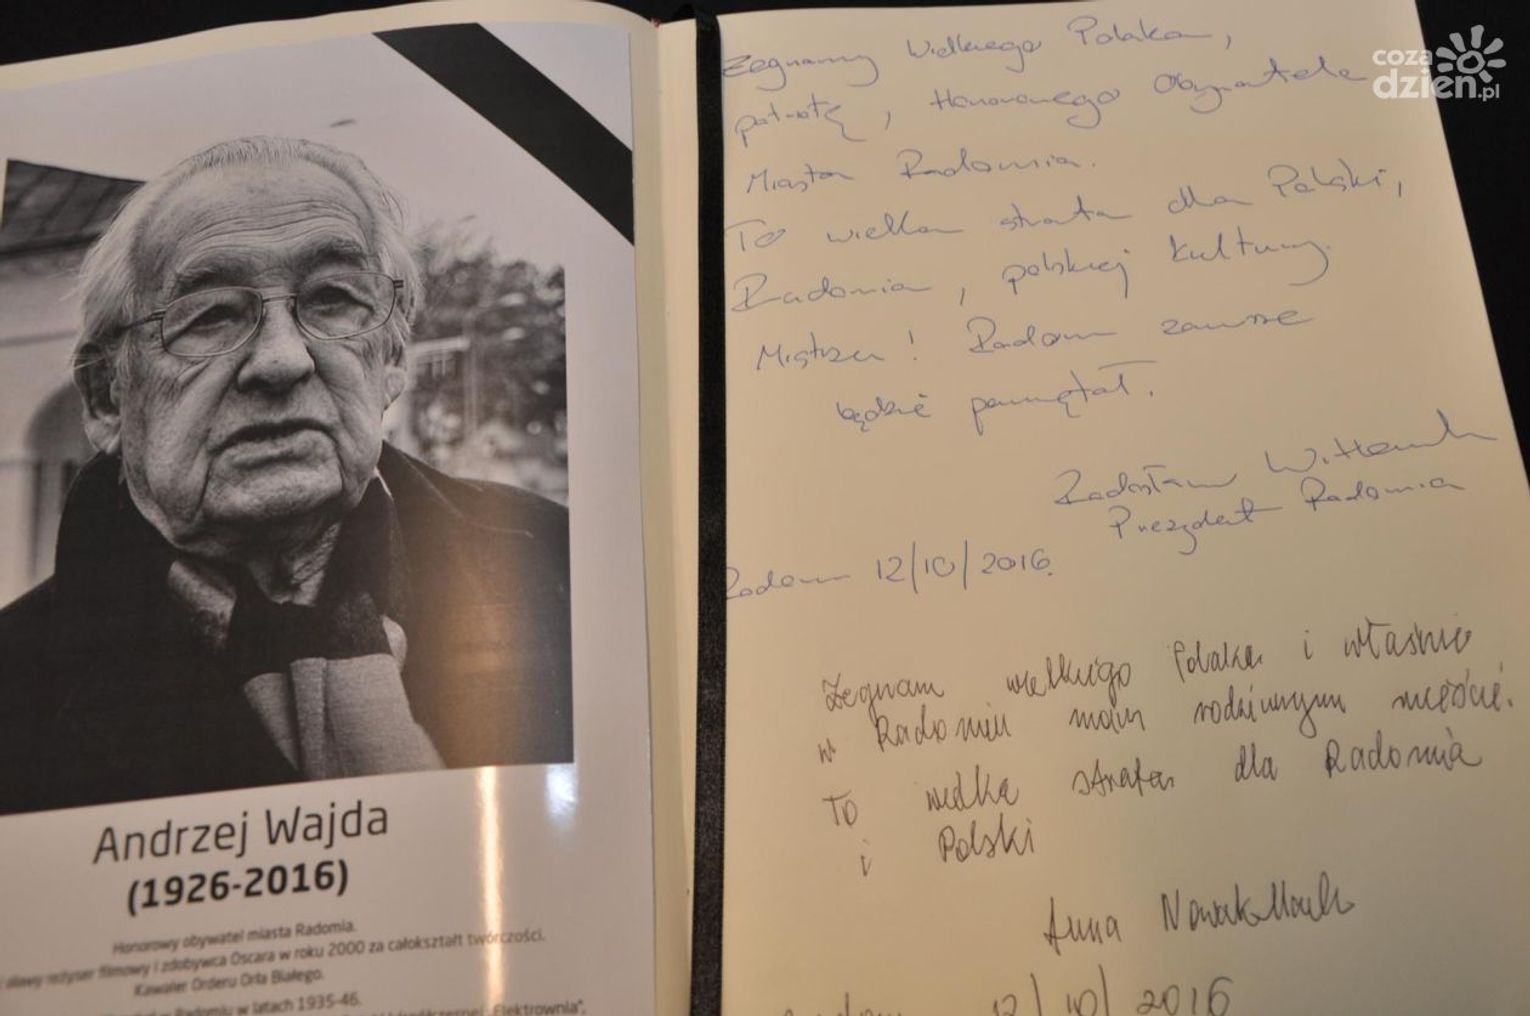 coza
dzien.pl
Żegnamy Wielkiego Polaka,
patriotę, Honorowego Obywatela
Miasta Radomia.
To wielka strata dla Polski,
Radomia, polskiej kultury.
Mistrzu! Radom zawsze
będzie pamiętał.
Radosław Witkowski
Prezydent Radomia
Radom 12/10/2016.
Żegnam wielkiego Polaka i właśnie
w Radomiu moim rodzinnym mieście.
To wielka strata dla Radomia
i Polski
Anna Nowak
12/10/2016
Andrzej Wajda
(1926-2016)
Honorowy obywatel miasta Radomia.
reżyser filmowy i zdobywca Oscara w roku 2000 za całokształt twórczości.
Kawaler Orderu Orła Białego.
w Radomiu w latach 1935-46.
"Elektrownia",